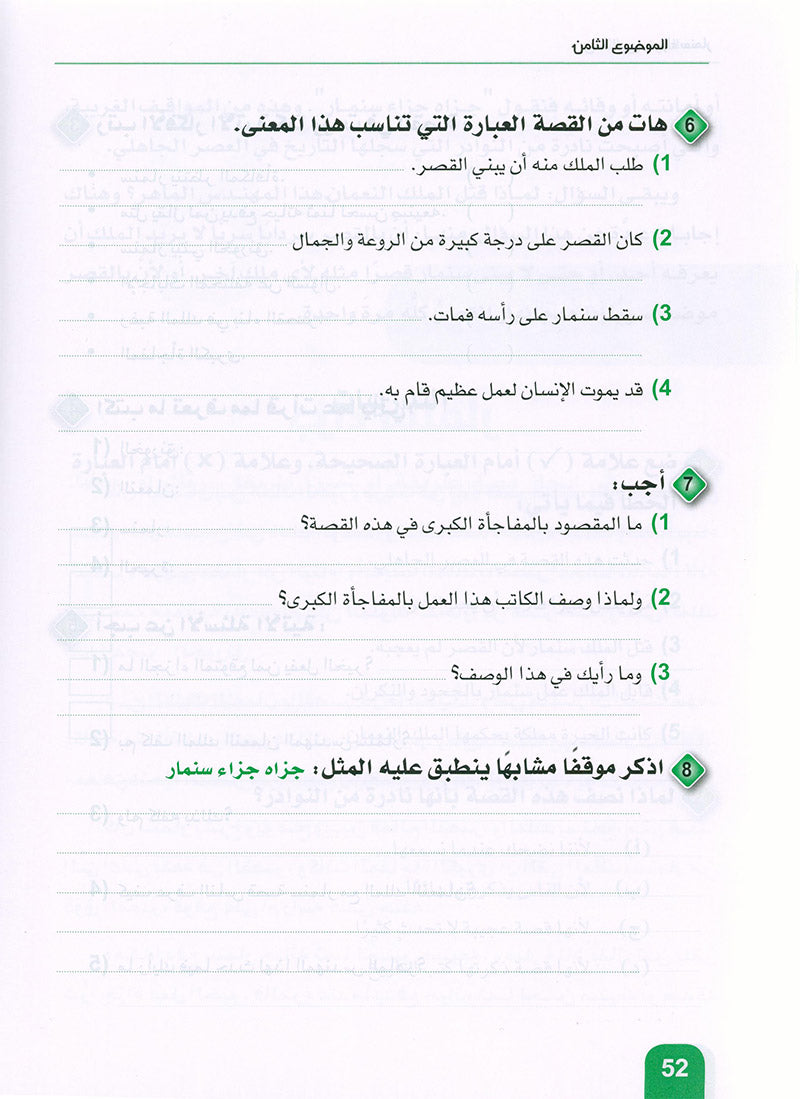 الموضوع الثامن
6 هات من القصة العبارة التي تناسب هذا المعنى.
1) طلب الملك منه أن يبني القصر.
2) كان القصر على درجة كبيرة من الروعة والجمال
3) سقط سنمار على رأسه فمات.
4) قد يموت الإنسان لعمل عظيم قام به.
7 أجب:
1) ما المقصود بالمفاجأة الكبرى في هذه القصة؟
2) ولماذا وصف الكاتب هذا العمل بالمفاجأة الكبرى؟
3) وما رأيك في هذا الوصف؟
8 اذكر موقفًا مشابهًا ينطبق عليه المثل: جزاه جزاء سنمار
52